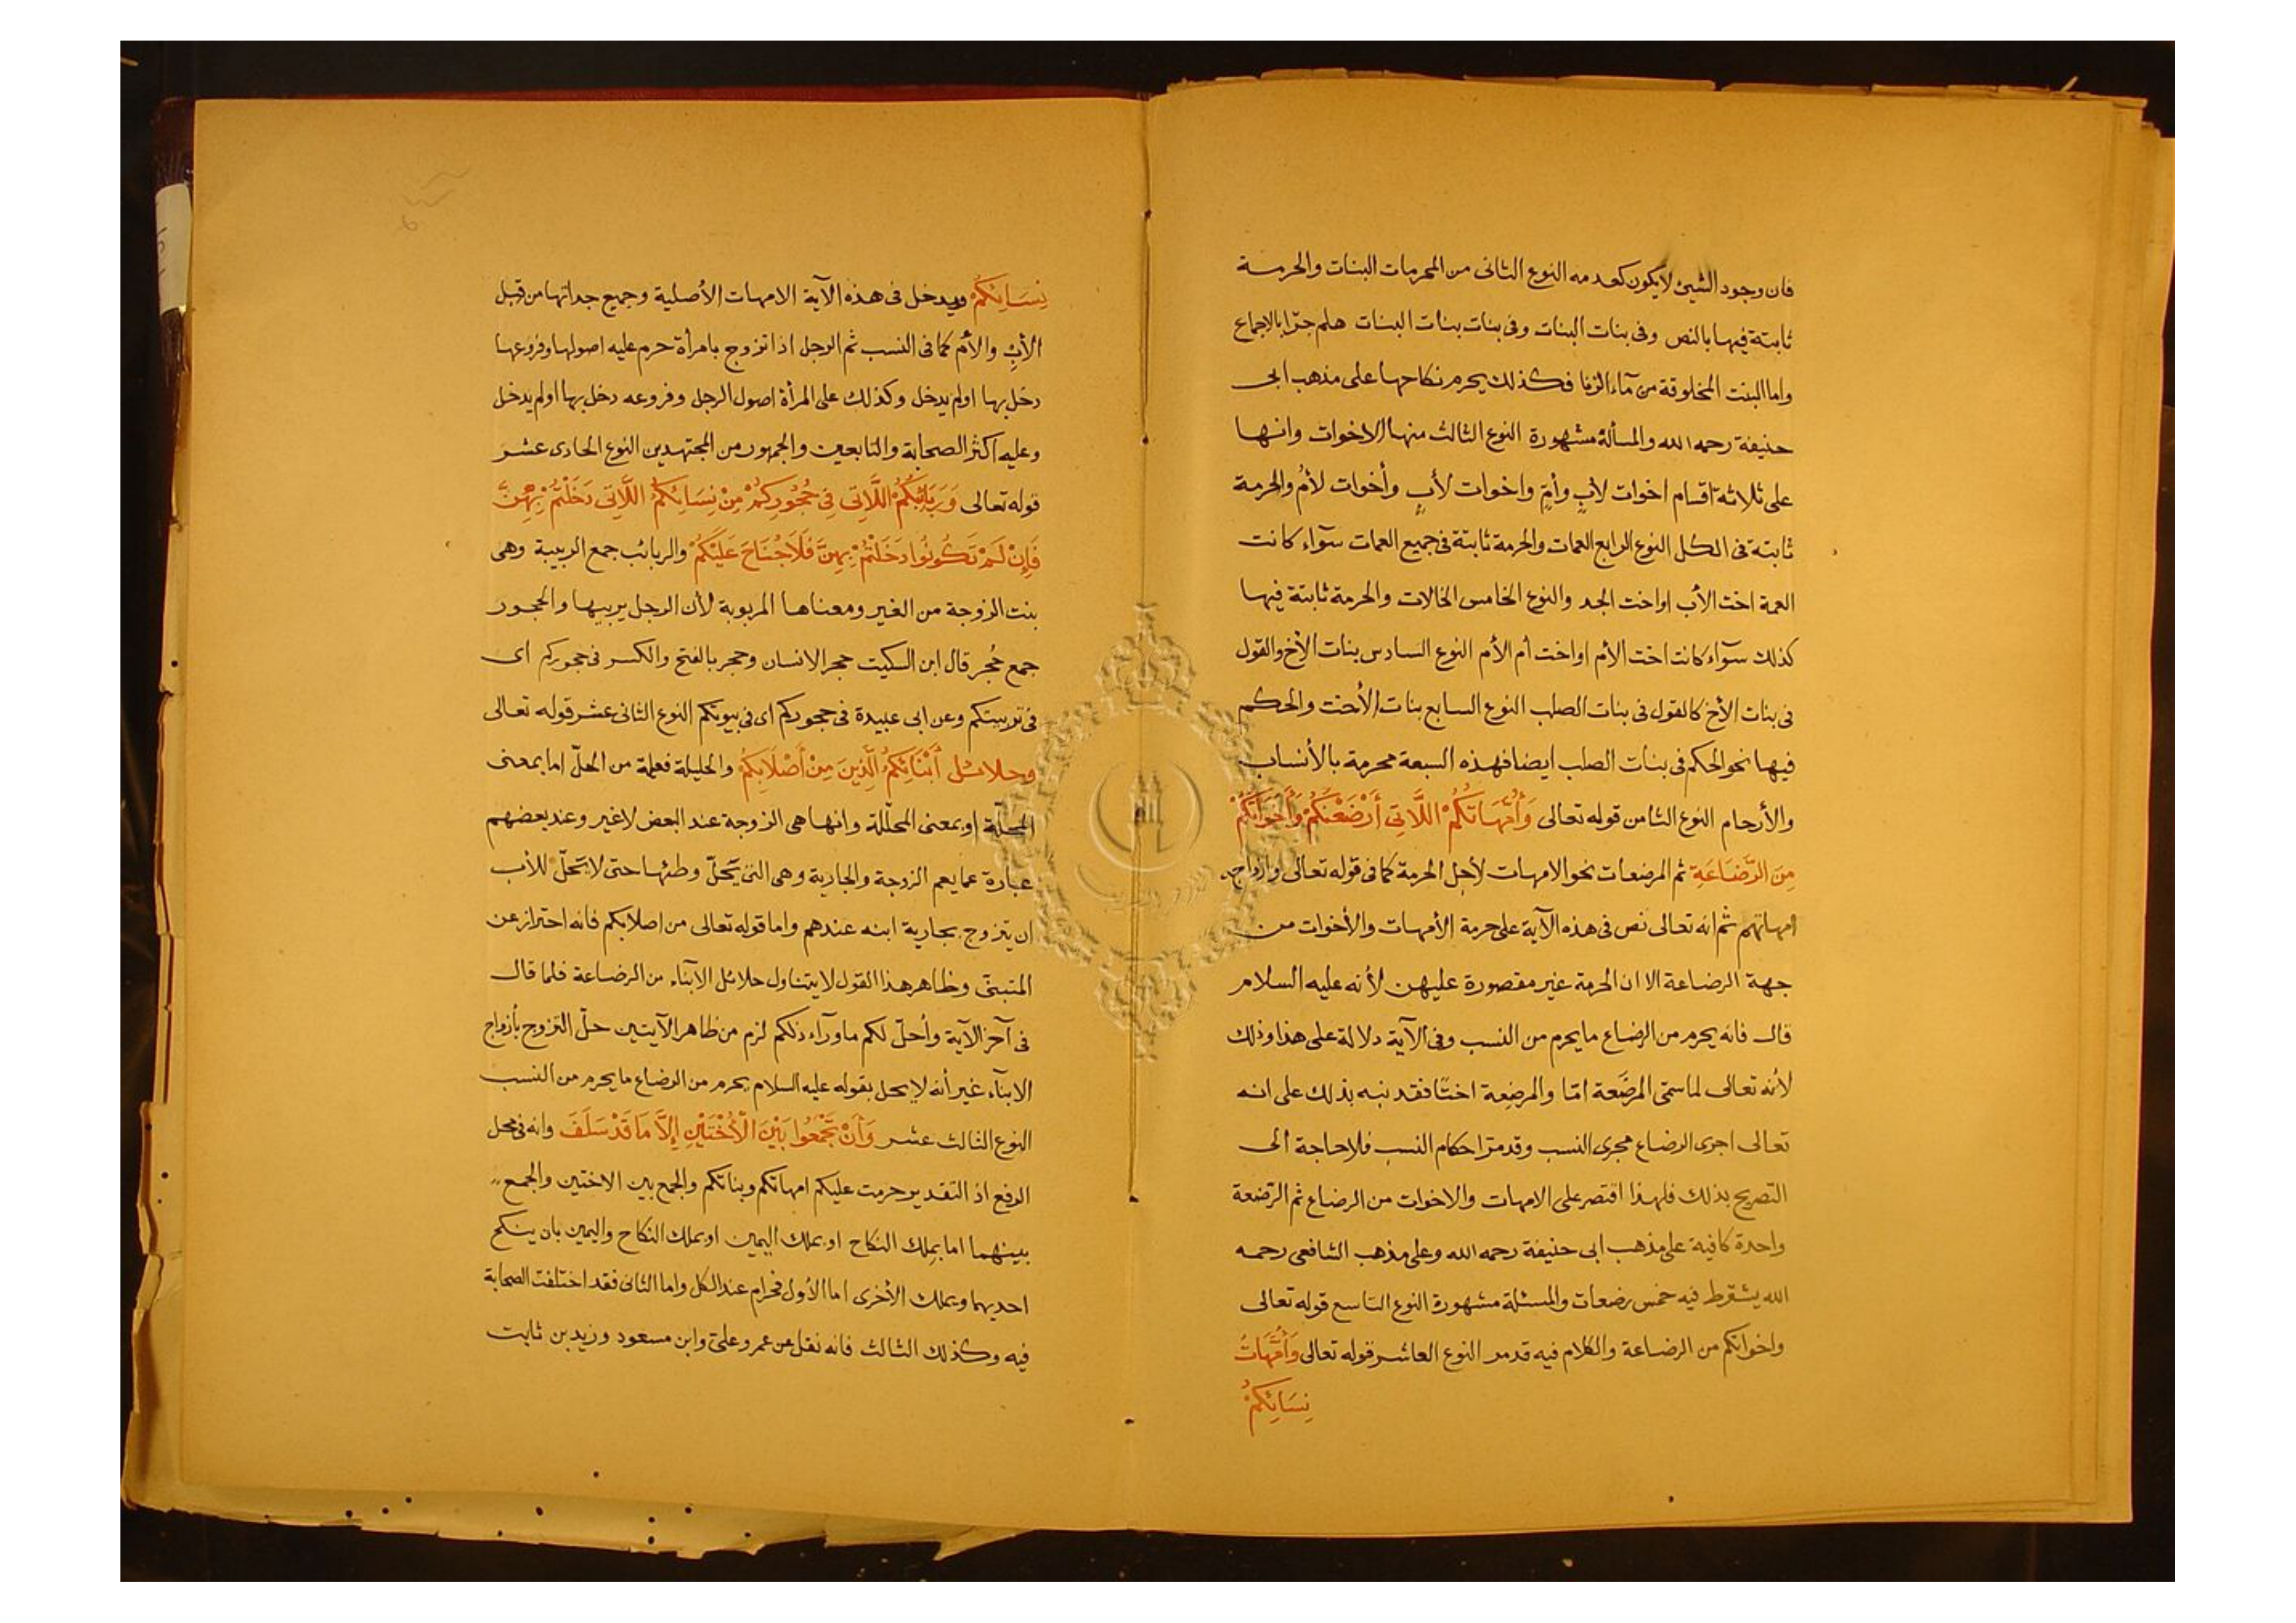 فان وجود الشيئ لا يكون كعدمه النوع الثانى من المحرمات البنات والحرمة
ثابتة فيها بالنص وفى بنات البنات وفى بنات بنات البنات هلم جرّا بالاجماع
واما البنت المخلوقة من مآء الزنا فكذلك يحرم نكاحها على مذهب ابى
حنيفة رحمه الله والمسألة مشهورة النوع الثالث منها الاخوات وانها
على ثلاثة اقسام اخوات لأبٍ وأمٍّ واخوات لأبٍ وأخوات لأمٍ والحرمة
ثابتة فى الكل النوع الرابع العمات والحرمة ثابتة فى جميع العمات سوآء كانت
العمة اخت الأب او اخت الجد والنوع الخامس الخالات والحرمة ثابتة فيها
كذلك سوآء كانت اخت الأم او اخت أم الأم النوع السادس بنات الأخ والقول
فى بنات الأخ كالقول فى بنات الصلب النوع السابع بنات الأخت والحكم
فيها نحو الحكم فى بنات الصلب ايضا فهذه السبعة محرمة بالأنساب
والأرحام النوع الثامن قوله تعالى وَأُمَّهَاتُكُمْ اللَّاتِى أَرْضَعْنَكُمْ وَأَخَوَاتُكُمْ
مِنَ الرَّضَاعَةِ ثم المرضعات نحو الامهات لأجل الحرمة كما فى قوله تعالى وازواجه
امهاتهم ثم انه تعالى نص فى هذه الآية على حرمة الأمهات والأخوات من
جهة الرضاعة الا ان الحرمة غير مقصورة عليهن لأنه عليه السلام
قال فانه يحرم من الرضاع ما يحرم من النسب وفى الآية دلالة على هذا وذلك
لأنه تعالى لما سمّى المرضَعة امّا والمرضِعة اختًا فقد نبه بذلك على انه
تعالى اجرى الرضاع مجرى النسب وقد مرّ احكام النسب فلا حاجة الى
التصريح بذلك فلهذا اقتصر على الامهات والاخوات من الرضاع ثم الرّضعة
واحدة كافية على مذهب ابى حنيفة رحمه الله وعلى مذهب الشافعى رحمه
الله يشترط فيه خمس رضعات والمسئلة مشهورة النوع التاسع قوله تعالى
واخواتكم من الرضاعة والكلام فيه قد مر النوع العاشر قوله تعالى وَأُمَّهَاتُ
نِسَائِكُمْ
نِسَائِكُمْ ويدخل فى هذه الآية الامهات الأصلية وجميع جداتها من قبل
الأبِ والأم كما فى النسب ثم الرجل اذا تزوج بامرأة حرم عليه اصولها وفروعها
دخل بها اولم يدخل وكذلك على المرأة اصول الرجل وفروعه دخل بها اولم يدخل
وعليه اكثر الصحابة والتابعين والجمهور من المجتهدين النوع الحادى عشر
قوله تعالى وَرَبَائِبُكُمُ اللَّاتِى فِى حُجُورِكُمْ مِنْ نِسَائِكُمُ اللَّاتِى دَخَلْتُمْ بِهِنَّ
فَإِنْ لَمْ تَكُونُوا دَخَلْتُمْ بِهِنَّ فَلَا جُنَاحَ عَلَيْكُمْ والربائب جمع الربيبة وهى
بنت الزوجة من الغير ومعناها المربوبة لأن الرجل يربيها والحجور
جمع حُجر قال ابن السكيت حجر الانسان وحجر بالفتح والكسر فى حجوركم اى
فى تربيتكم وعن ابى عبيدة فى حجوركم اى فى بيوتكم النوع الثانى عشر قوله تعالى
وحلائل أَبْنَائِكُمُ الَّذِينَ مِنْ أَصْلَابِكُمْ والحليلة فعيلة من الحلّ اما بمعنى
المحلّة او بمعنى المحلّلة وانها هى الزوجة عند البعض لا غير وعند بعضهم
عبارة عما يعم الزوجة والجارية وهى التى يحلّ وطئها حتى لا تحلّ للأب
ان يتزوج بجارية ابنه عندهم واما قوله تعالى من اصلابكم فانه احتراز عن
المتبنّى وظاهر هذا القول لا يتناول حلائل الابنآء من الرضاعة فلما قال
فى آخر الآية وأحلّ لكم ما ورآء ذلكم لزم من ظاهر الآيتين حلّ التزوج بأزواج
الابنآء غير أنه لا يحل بقوله عليه السلام يحرم من الرضاع ما يحرم من النسب
النوع الثالث عشر وَأَنْ تَجْمَعُوا بَيْنَ الْأُخْتَيْنِ إِلَّا مَا قَدْ سَلَفَ وانه فى محل
الرفع اذ التقدير حرمت عليكم امهاتكم وبناتكم والجمع بين الاختين والجمع
بينهما اما بملك النكاح او بملك اليمين او بملك النكاح واليمين بان ينكح
احديهما ويملك الأخرى اما الأول فحرام عند الكل واما الثانى فقد اختلفت الصحابة
فيه وكذلك الثالث فانه نقل عن عمر وعلى وابن مسعود وزيد بن ثابت